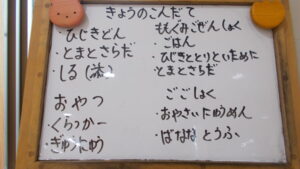 きょうのこんだて
・ひじきどん
・とまとさらだ
・しる(
おやつ
・くらっかー
・ぎゅうにゅう
ももぐみごぜんしょく
・ごはん
・ひじきととりといために
とまとさらだ
ごごしょく
・おやさいにゅうめん
・ばななとうふ